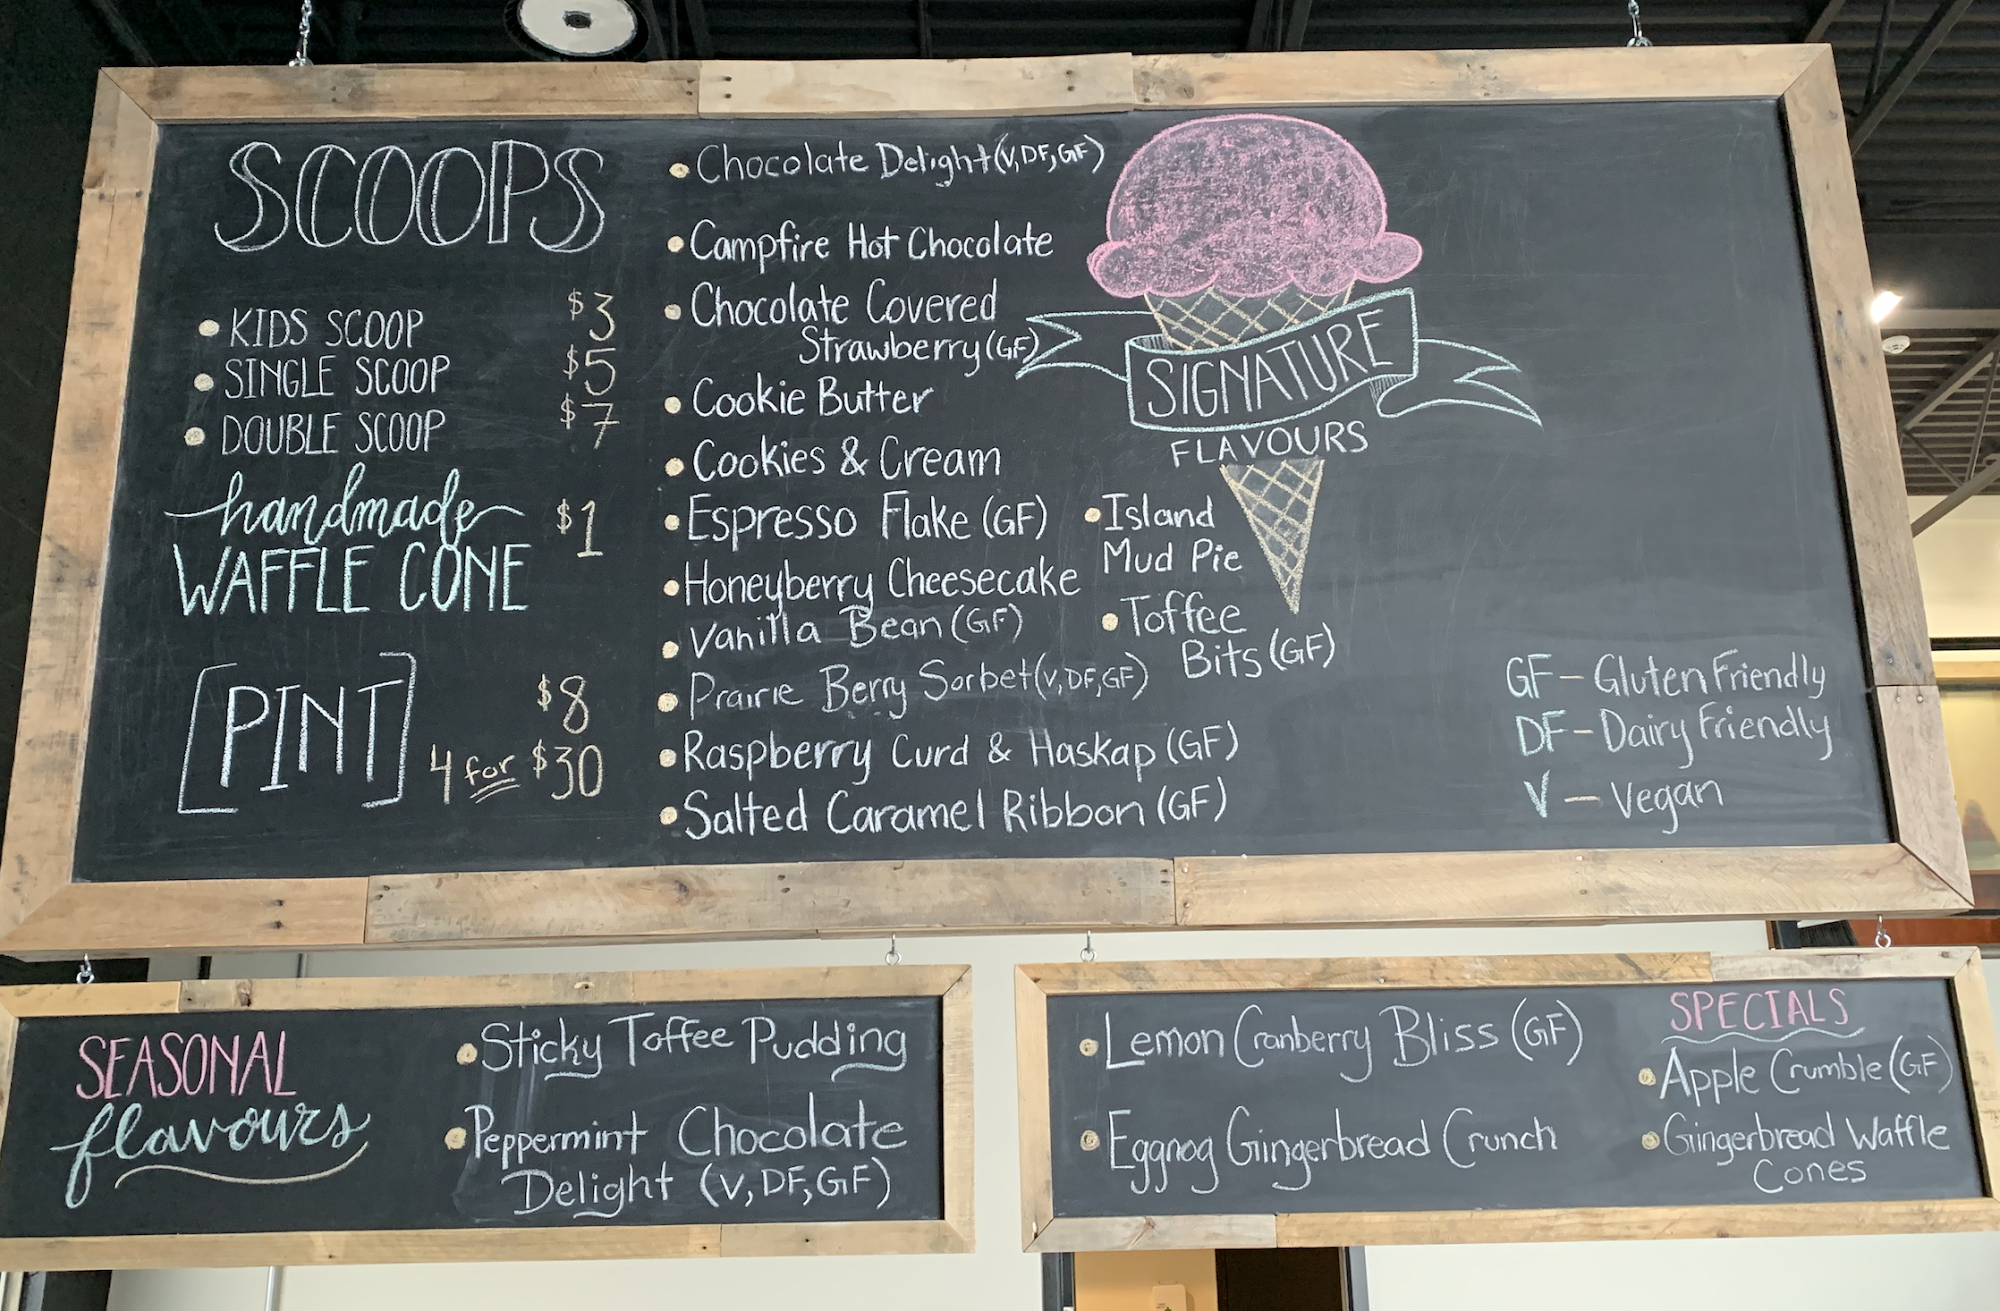 SCOOPS
KIDS SCOOP $3
SINGLE SCOOP $5
DOUBLE SCOOP $7
handmade
WAFFLE CONE $1
[PINT] $8
4 for $30
Chocolate Delight (V, DF, GF)
Campfire Hot Chocolate
Chocolate Covered
Strawberry (GF)
Cookie Butter
Cookies & Cream
Espresso Flake (GF)
Honeyberry Cheesecake
Vanilla Bean (GF)
Prairie Berry Sorbet (V, DF, GF)
Raspberry Curd & Haskap (GF)
Salted Caramel Ribbon (GF)
SIGNATURE
FLAVOURS
Island
Mud Pie
Toffee
Bits (GF)
GF – Gluten Friendly
DF – Dairy Friendly
V – Vegan
SEASONAL
flavours
Sticky Toffee Pudding
Peppermint Chocolate
Delight (V, DF, GF)
Lemon Cranberry Bliss (GF)
Eggnog Gingerbread Crunch
SPECIALS
Apple Crumble (GF)
Gingerbread Waffle
Cones